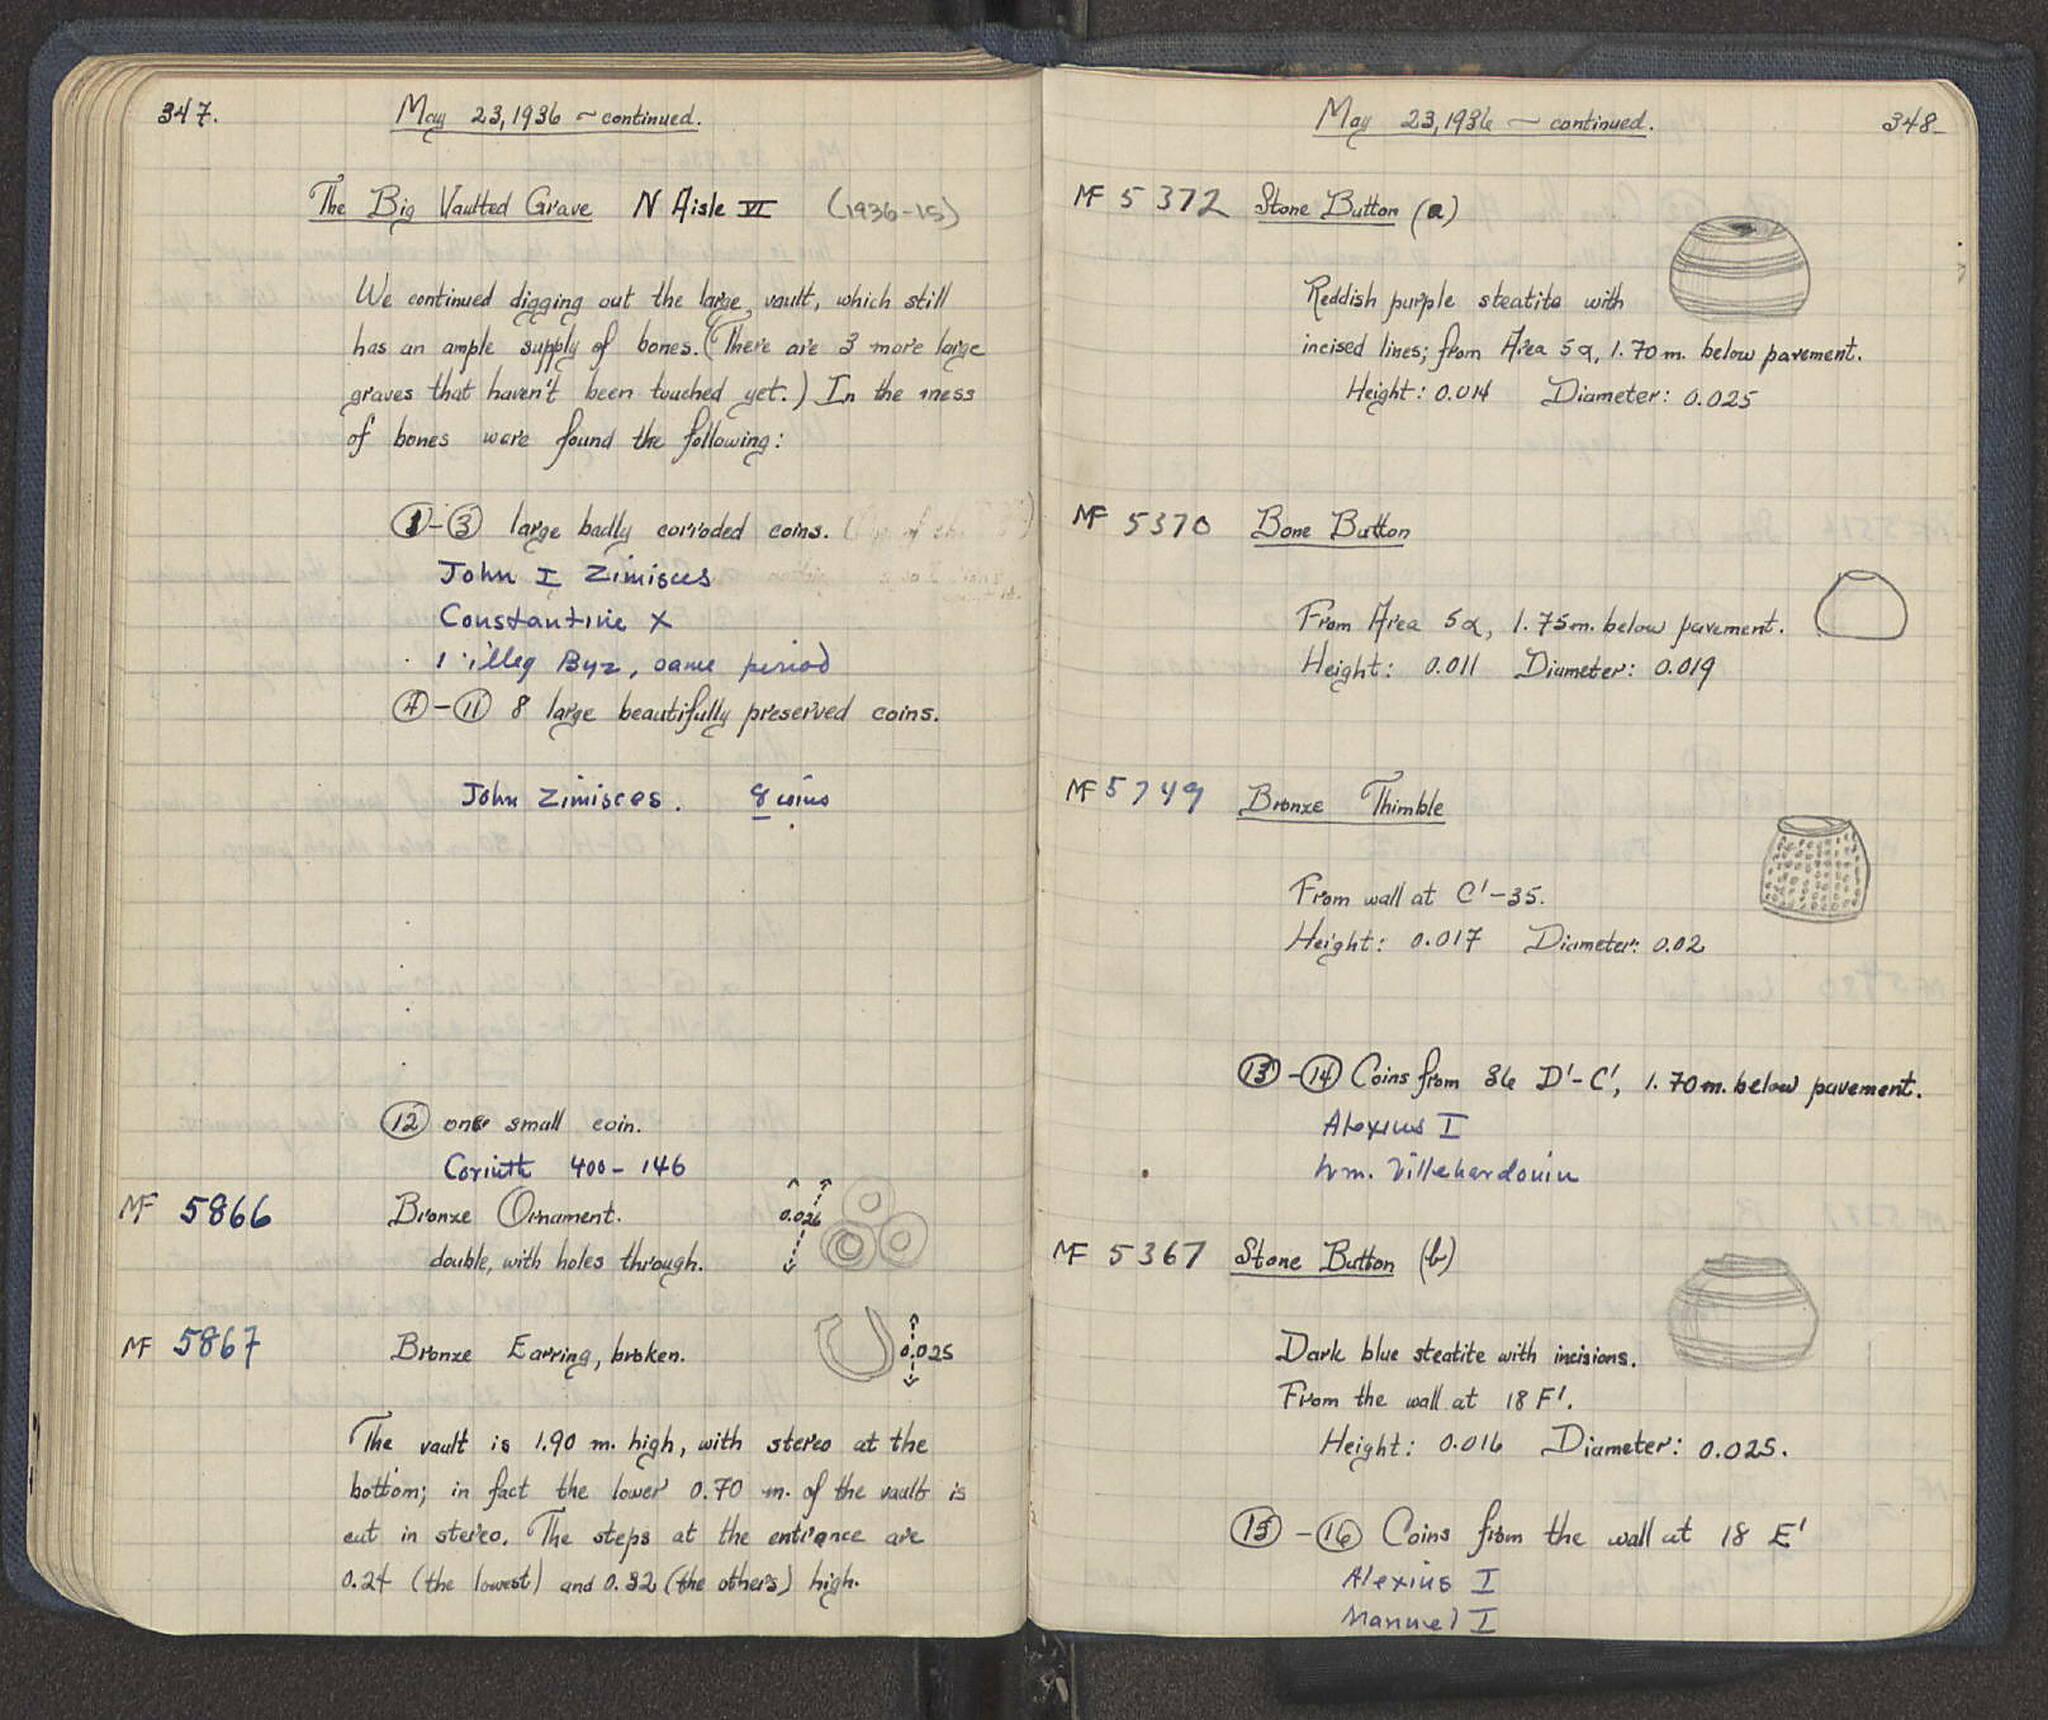 347.
May 23, 1936 ~ continued.
The Big Vaulted Grave N Aisle VI (1936-15)
We continued digging out the large vault, which still
has an ample supply of bones. (There are 3 more large
graves that haven't been touched yet.) In the mess
of bones were found the following:
①-③ large badly corroded coins.
John I Zimisces
Constantine X
1 illeg Byz, same period
④-⑪ 8 large beautifully preserved coins.
John Zimisces. 8 coins
⑫ one small coin.
Corinth 400-146
MF 5866 Bronze Ornament. 0.026
double, with holes through.
MF 5867 Bronze Earring, broken. 0.025
The vault is 1.90 m. high, with stereo at the
bottom; in fact the lower 0.70 m. of the vault is
cut in stereo. The steps at the entrance are
0.24 (the lowest) and 0.32 (the others) high.
May 23, 1936 ~ continued.
348
MF 5372 Stone Button (a)
Reddish purple steatite with
incised lines; from Area 5α, 1.70 m. below pavement.
Height: 0.014 Diameter: 0.025
MF 5370 Bone Button
From Area 5α, 1.75 m. below pavement.
Height: 0.011 Diameter: 0.019
MF 5749 Bronze Thimble
From wall at C'-35.
Height: 0.017 Diameter: 0.02
⑬-⑭ Coins from 36 D'-C', 1.70 m. below pavement.
Alexius I
Wm. Villehardouin
MF 5367 Stone Button (b)
Dark blue steatite with incisions.
From the wall at 18 F'.
Height: 0.016 Diameter: 0.025.
⑮-⑯ Coins from the wall at 18 E'
Alexius I
Manuel I